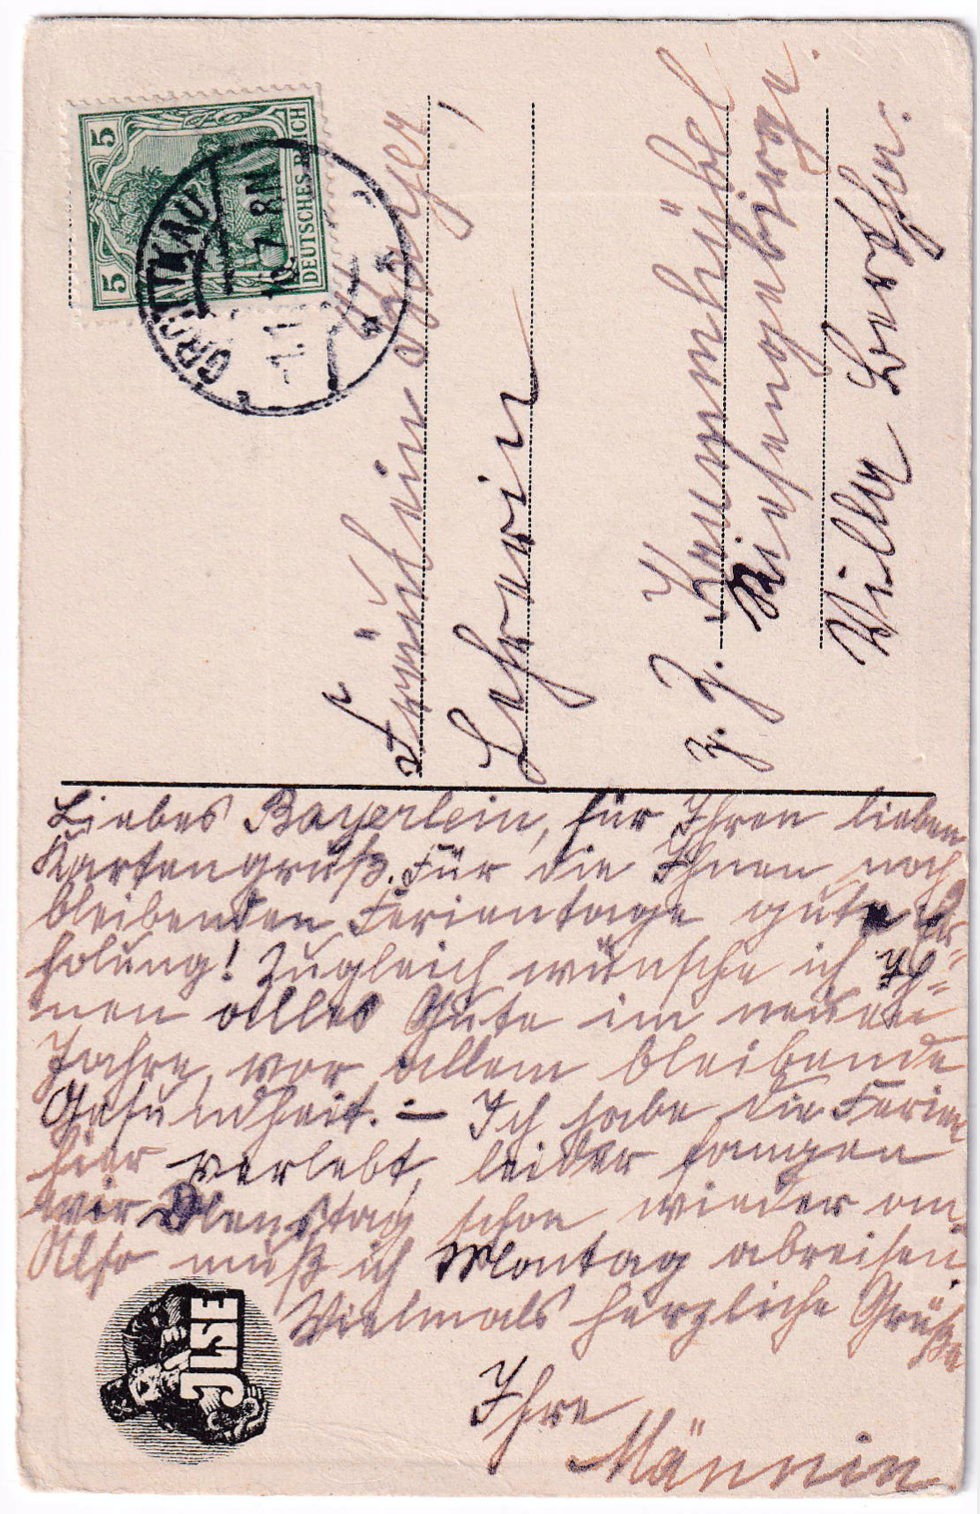 5
5
DEUTSCHES REICH
GROTTKAU
-1.1
7-8 N
Fräulein Bayer,
Lehrerin
z. Z. Krummhübel
Riesengebirge.
Villa Bertha.
Liebes Bayerlein, für Ihren lieben
Kartengruß. Für die Ihnen noch
bleibenden Ferientage gute Er-
holung! Zugleich wünsche ich Ih-
nen alles Gute im neuen
Jahre, vor allem bleibende
Gesundheit. – Ich habe die Ferien
hier verlebt, leider fangen
wir Dienstag schon wieder an.
Also muß ich Montag abreisen.
Vielmals herzliche Grüße
Ihre
Männin.
JLSE